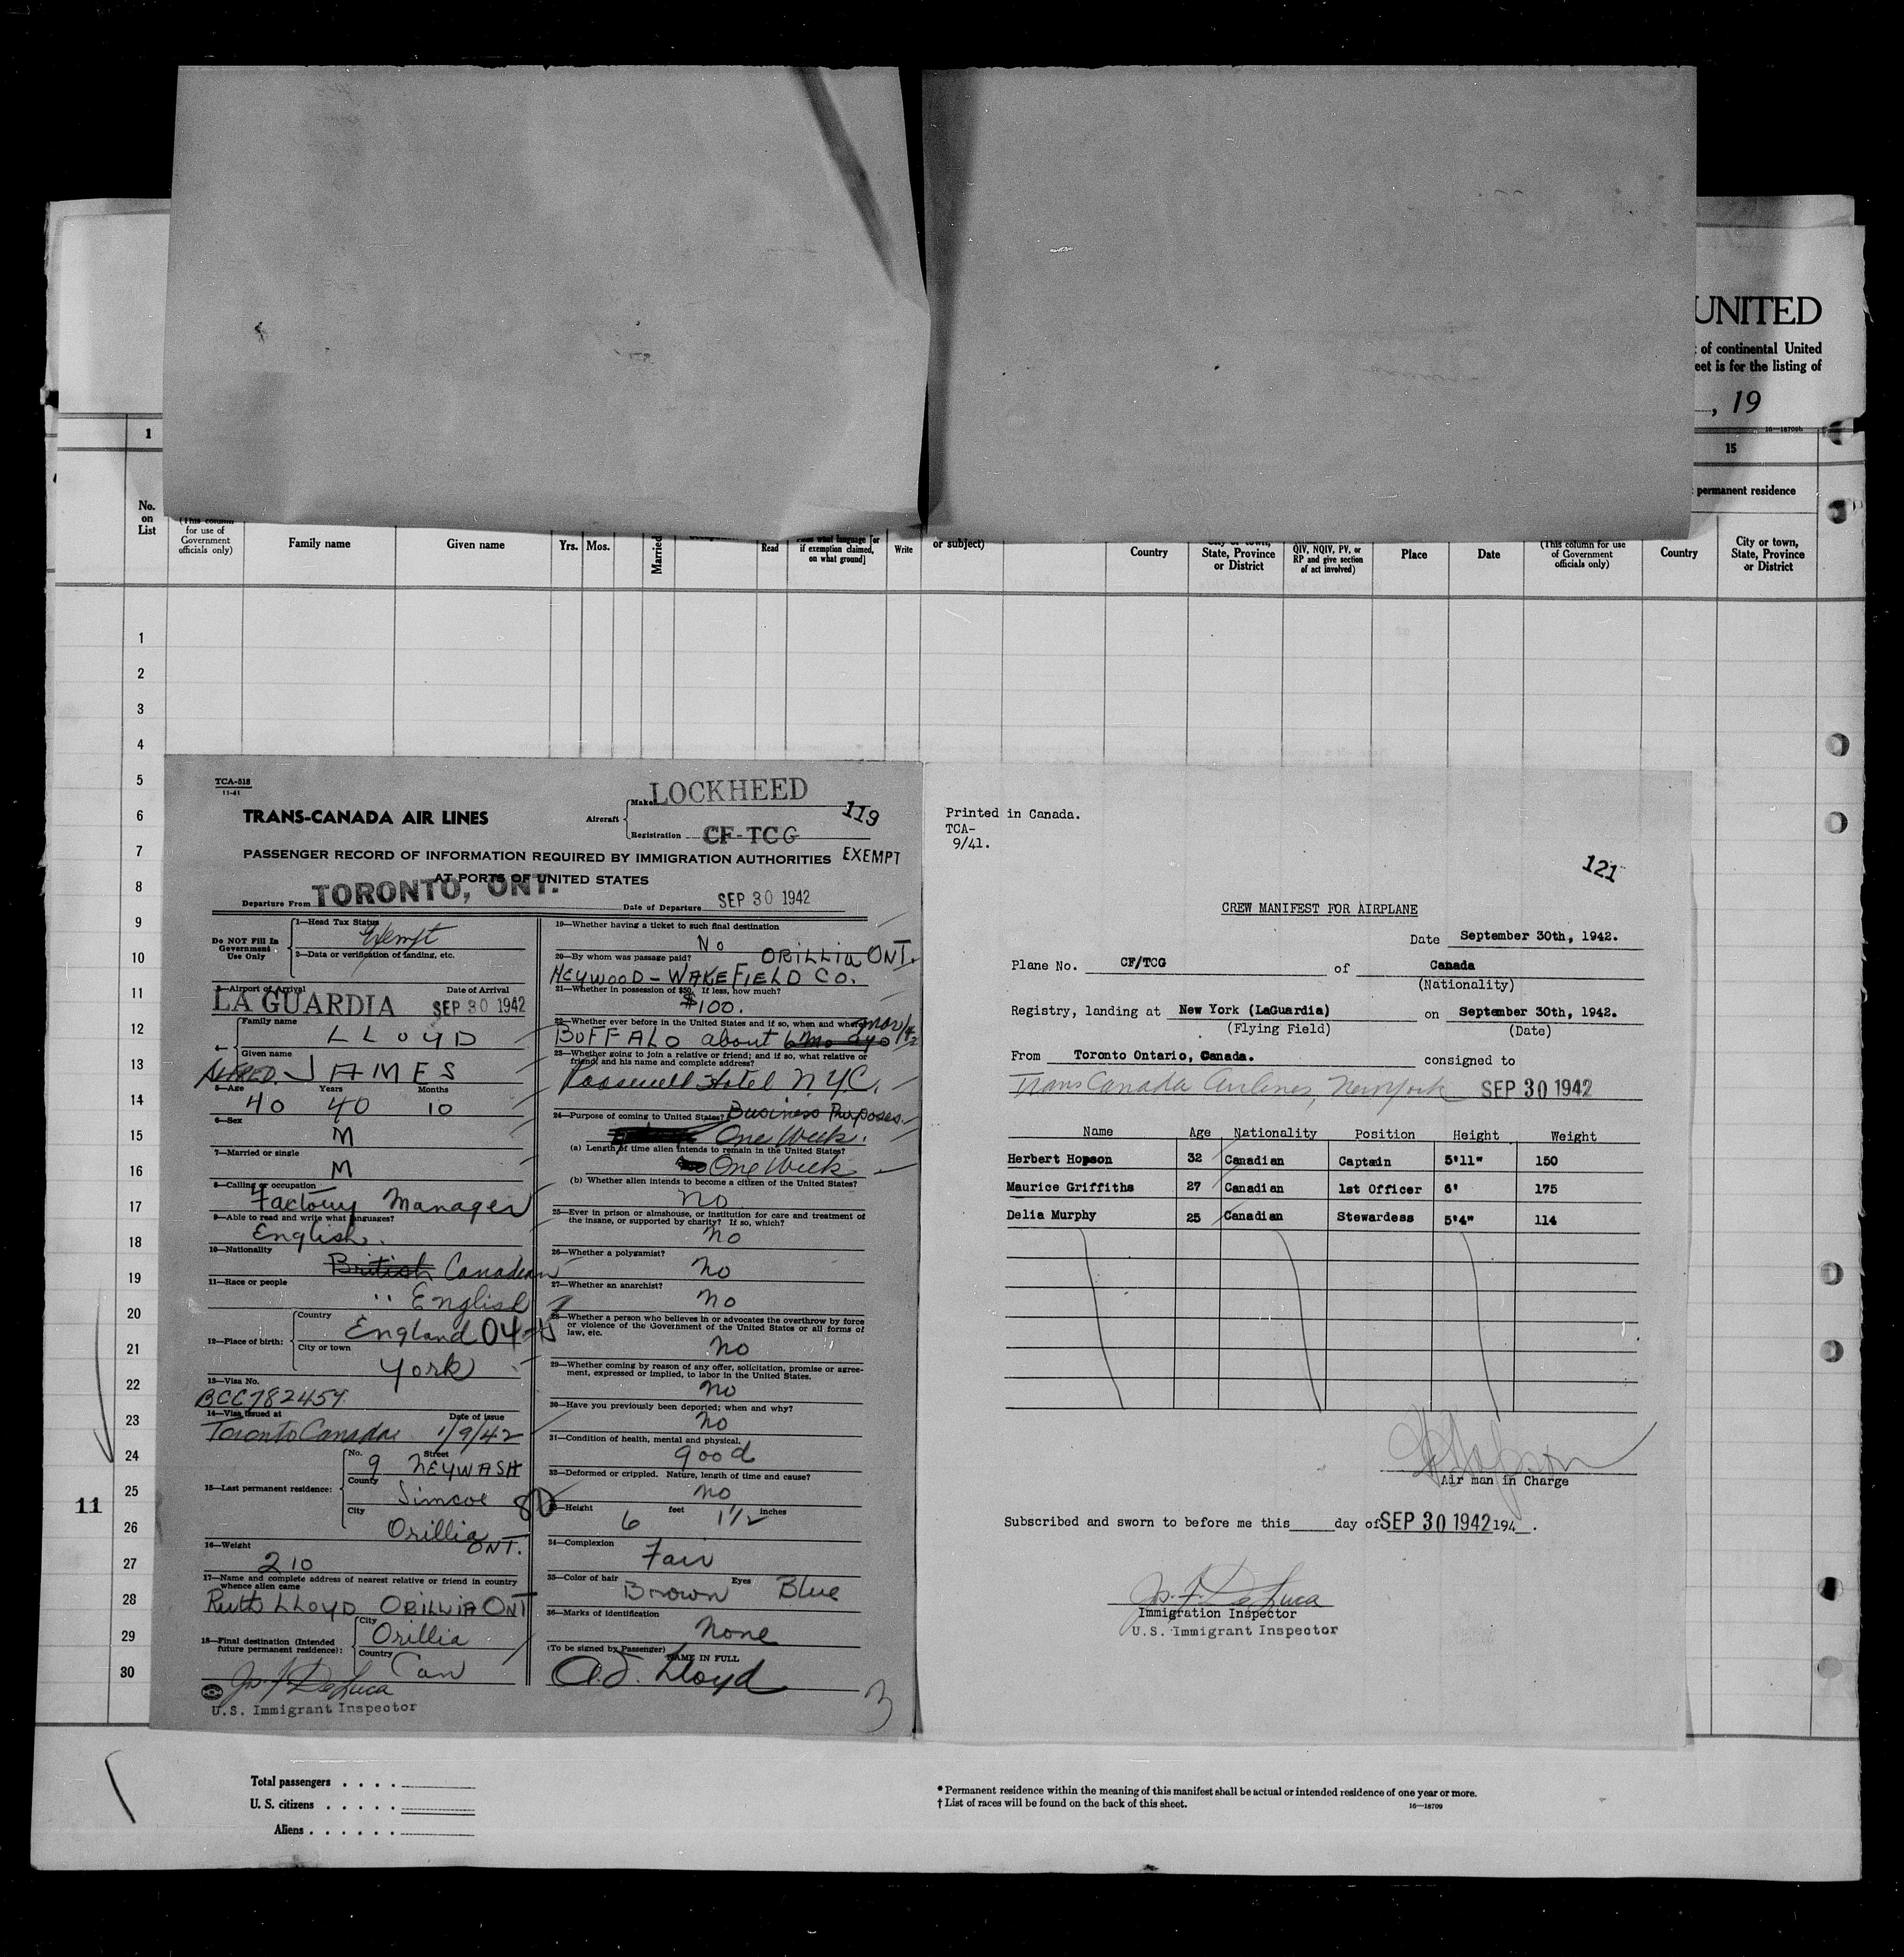 UNITED
of continental United
eet is for the listing of
, 19
16—18709b
1
15
permanent residence
No. on List
(This column for use of Government officials only)
Family name
Given name
Yrs.
Mos.
Married
Read
if exemption claimed, on what ground]
Write
or subject)
Country
State, Province or District
QIV, NQIV, PV, or RP and give section of act involved)
Place
Date
(This column for use of Government officials only)
Country
City or town, State, Province or District
1
2
3
4
5
6
7
8
9
10
11
12
13
14
15
16
17
18
19
20
21
22
23
24
25
26
27
28
29
30
11
TCA-518
11-41
TRANS-CANADA AIR LINES
Aircraft
Make LOCKHEED
Registration CF-TCG
119
PASSENGER RECORD OF INFORMATION REQUIRED BY IMMIGRATION AUTHORITIES
EXEMPT
AT PORTS OF UNITED STATES
Departure From TORONTO, ONT.
Date of Departure SEP 30 1942
Do NOT Fill In Government Use Only
1—Head Tax Status
Exempt
2—Data or verification of landing, etc.
3—Airport of Arrival
Date of Arrival
LA GUARDIA SEP 30 1942
Family name
LLOYD
Given name
ALFRED JAMES
5—Age Years Months
40 40 10
6—Sex
M
7—Married or single
M
8—Calling or occupation
Factory Manager
9—Able to read and write what languages?
English.
10—Nationality
British Canadian
11—Race or people
" English
12—Place of birth:
Country
England 04
City or town
York
13—Visa No.
BCC782457
14—Visa issued at
Date of issue
Toronto Canada 1/9/42
15—Last permanent residence:
No. Street
9 NEYWASH
County
Simcoe
City
80
Orillia ONT.
16—Weight
210
17—Name and complete address of nearest relative or friend in country whence alien came
Ruth LLOYD ORILLIA ONT
18—Final destination (Intended future permanent residence):
City
Orillia
Country
Can
Js. F. DeLuca
U.S. Immigrant Inspector
19—Whether having a ticket to such final destination
No
20—By whom was passage paid?
ORILLIA ONT.
HEYWOOD-WAKEFIELD CO.
21—Whether in possession of $50. If less, how much?
$100.
22—Whether ever before in the United States and if so, when and where
BUFFALO about 6 mo ago
23—Whether going to join a relative or friend; and if so, what relative or friend and his name and complete address?
Roosevelt Hotel N.Y.C.
24—Purpose of coming to United States? Business Purposes.
One Week.
(a) Length of time alien intends to remain in the United States?
One Week
(b) Whether alien intends to become a citizen of the United States?
no
25—Ever in prison or almshouse, or institution for care and treatment of the insane, or supported by charity? If so, which?
no
26—Whether a polygamist?
no
27—Whether an anarchist?
no
28—Whether a person who believes in or advocates the overthrow by force or violence of the Government of the United States or all forms of law, etc.
no
29—Whether coming by reason of any offer, solicitation, promise or agreement, expressed or implied, to labor in the United States.
no
30—Have you previously been deported; when and why?
no
31—Condition of health, mental and physical.
good
32—Deformed or crippled. Nature, length of time and cause?
no
33—Height feet inches
6 1½
34—Complexion
Fair
35—Color of hair Eyes
Brown Blue
36—Marks of identification
None
(To be signed by Passenger) NAME IN FULL
A.J. Lloyd
3
Printed in Canada.
TCA-
9/41.
121
CREW MANIFEST FOR AIRPLANE
Date September 30th, 1942.
Plane No. CF/TCG of Canada
(Nationality)
Registry, landing at New York (LaGuardia) on September 30th, 1942.
(Flying Field) (Date)
From Toronto Ontario, Canada. consigned to
Trans Canada Airlines, New York SEP 30 1942
Name Age Nationality Position Height Weight
Herbert Hopson 32 Canadian Captain 5'11" 150
Maurice Griffiths 27 Canadian 1st Officer 6' 175
Delia Murphy 25 Canadian Stewardess 5'4" 114
H Hopson
Air man in Charge
Subscribed and sworn to before me this day of SEP 30 1942 194 .
Js. F. DeLuca
Immigration Inspector
U.S. Immigrant Inspector
Total passengers . . . .
U. S. citizens . . . . .
Aliens . . . . . .
* Permanent residence within the meaning of this manifest shall be actual or intended residence of one year or more.
† List of races will be found on the back of this sheet.
16—18709